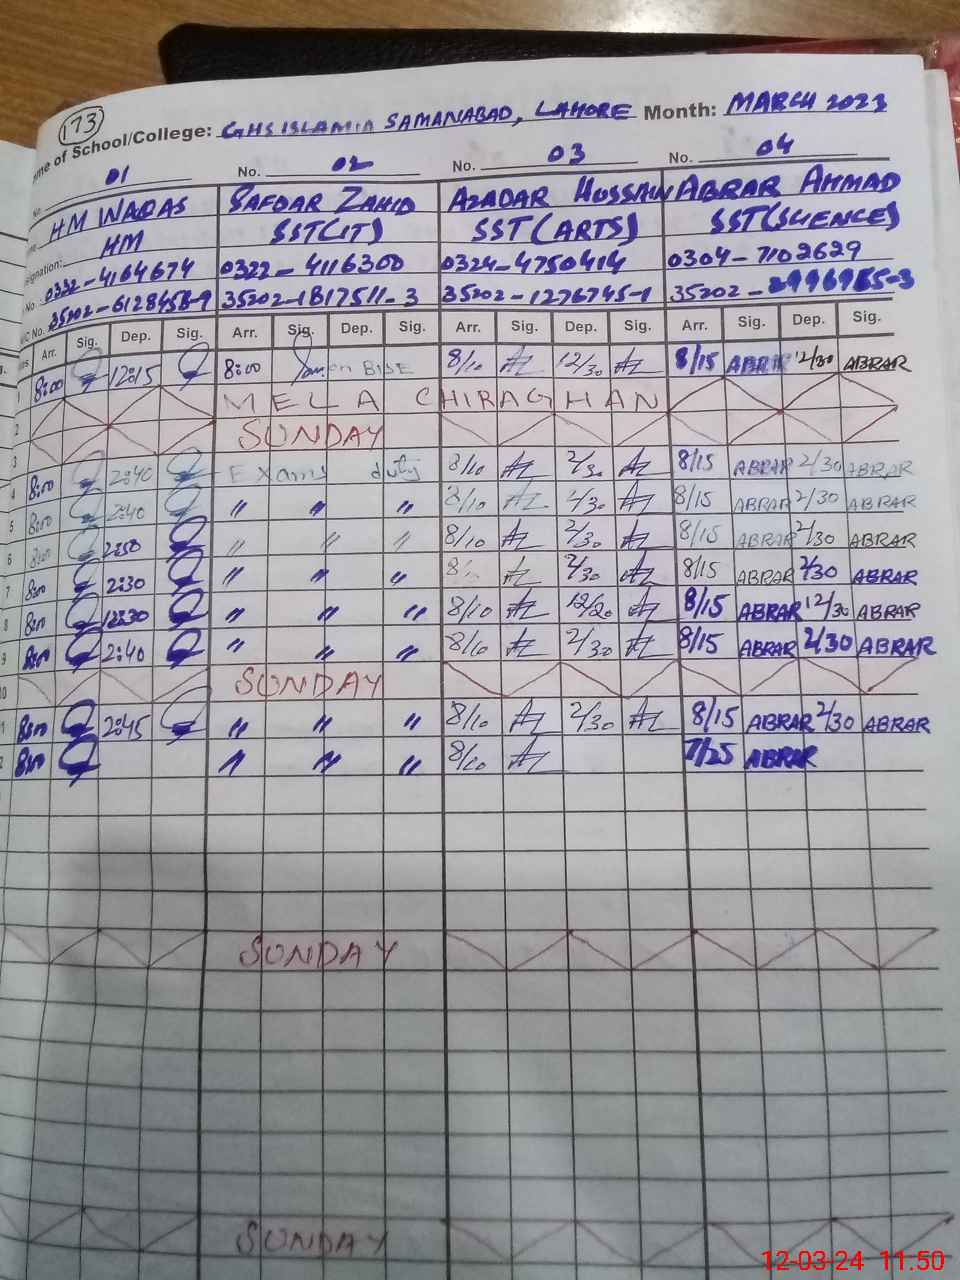 173
me of School/College: GHS ISLAMIA SAMANABAD, LAHORE Month: MARCH 2023
01 No. 02 No. 03 No. 04
HM WAQAS SAFDAR ZAHID AZADAR HUSSAIN ABRAR AHMAD
HM SST(IT) SST(ARTS) SST(SCIENCE)
signation:
0332-4164674 0322-4116300 0324-4750414 0304-7102629
No. 35202-6128458-9 35202-1817511-3 35202-1276745-1 35202-2996965-3
Arr. Sig. Dep. Sig. Arr. Sig. Dep. Sig. Arr. Sig. Dep. Sig. Arr. Sig. Dep. Sig.
1 8:00 12:15 8:00 on BISE 8/10 AZ 12/30 AZ 8/15 ABRAR 12/30 ABRAR
2 MELA CHIRAGHAN
3 SUNDAY
4 8:00 2:40 Exams duty 8/10 AZ 2/30 AZ 8/15 ABRAR 2/30 ABRAR
5 8:00 2:40 〃 〃 〃 8/10 AZ 2/30 AZ 8/15 ABRAR 2/30 ABRAR
6 8:00 2:50 〃 〃 〃 8/10 AZ 2/30 AZ 8/15 ABRAR 2/30 ABRAR
7 8:00 2:30 〃 〃 〃 8/10 AZ 2/30 AZ 8/15 ABRAR 2/30 ABRAR
8 8:00 12:30 〃 〃 〃 8/10 AZ 12/20 AZ 8/15 ABRAR 12/30 ABRAR
9 8:00 2:40 〃 〃 〃 8/10 AZ 2/30 AZ 8/15 ABRAR 2/30 ABRAR
0 SUNDAY
1 8:00 2:45 〃 〃 〃 8/10 AZ 2/30 AZ 8/15 ABRAR 2/30 ABRAR
2 8:00 〃 〃 〃 8/10 AZ 7/25 ABRAR
SUNDAY
SUNDAY
12-03-24 11.50